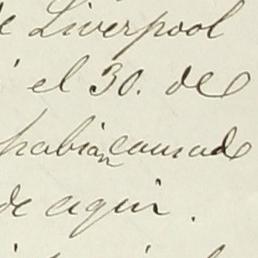 de Liverpool
el 30. del
habian causado
de aqui.